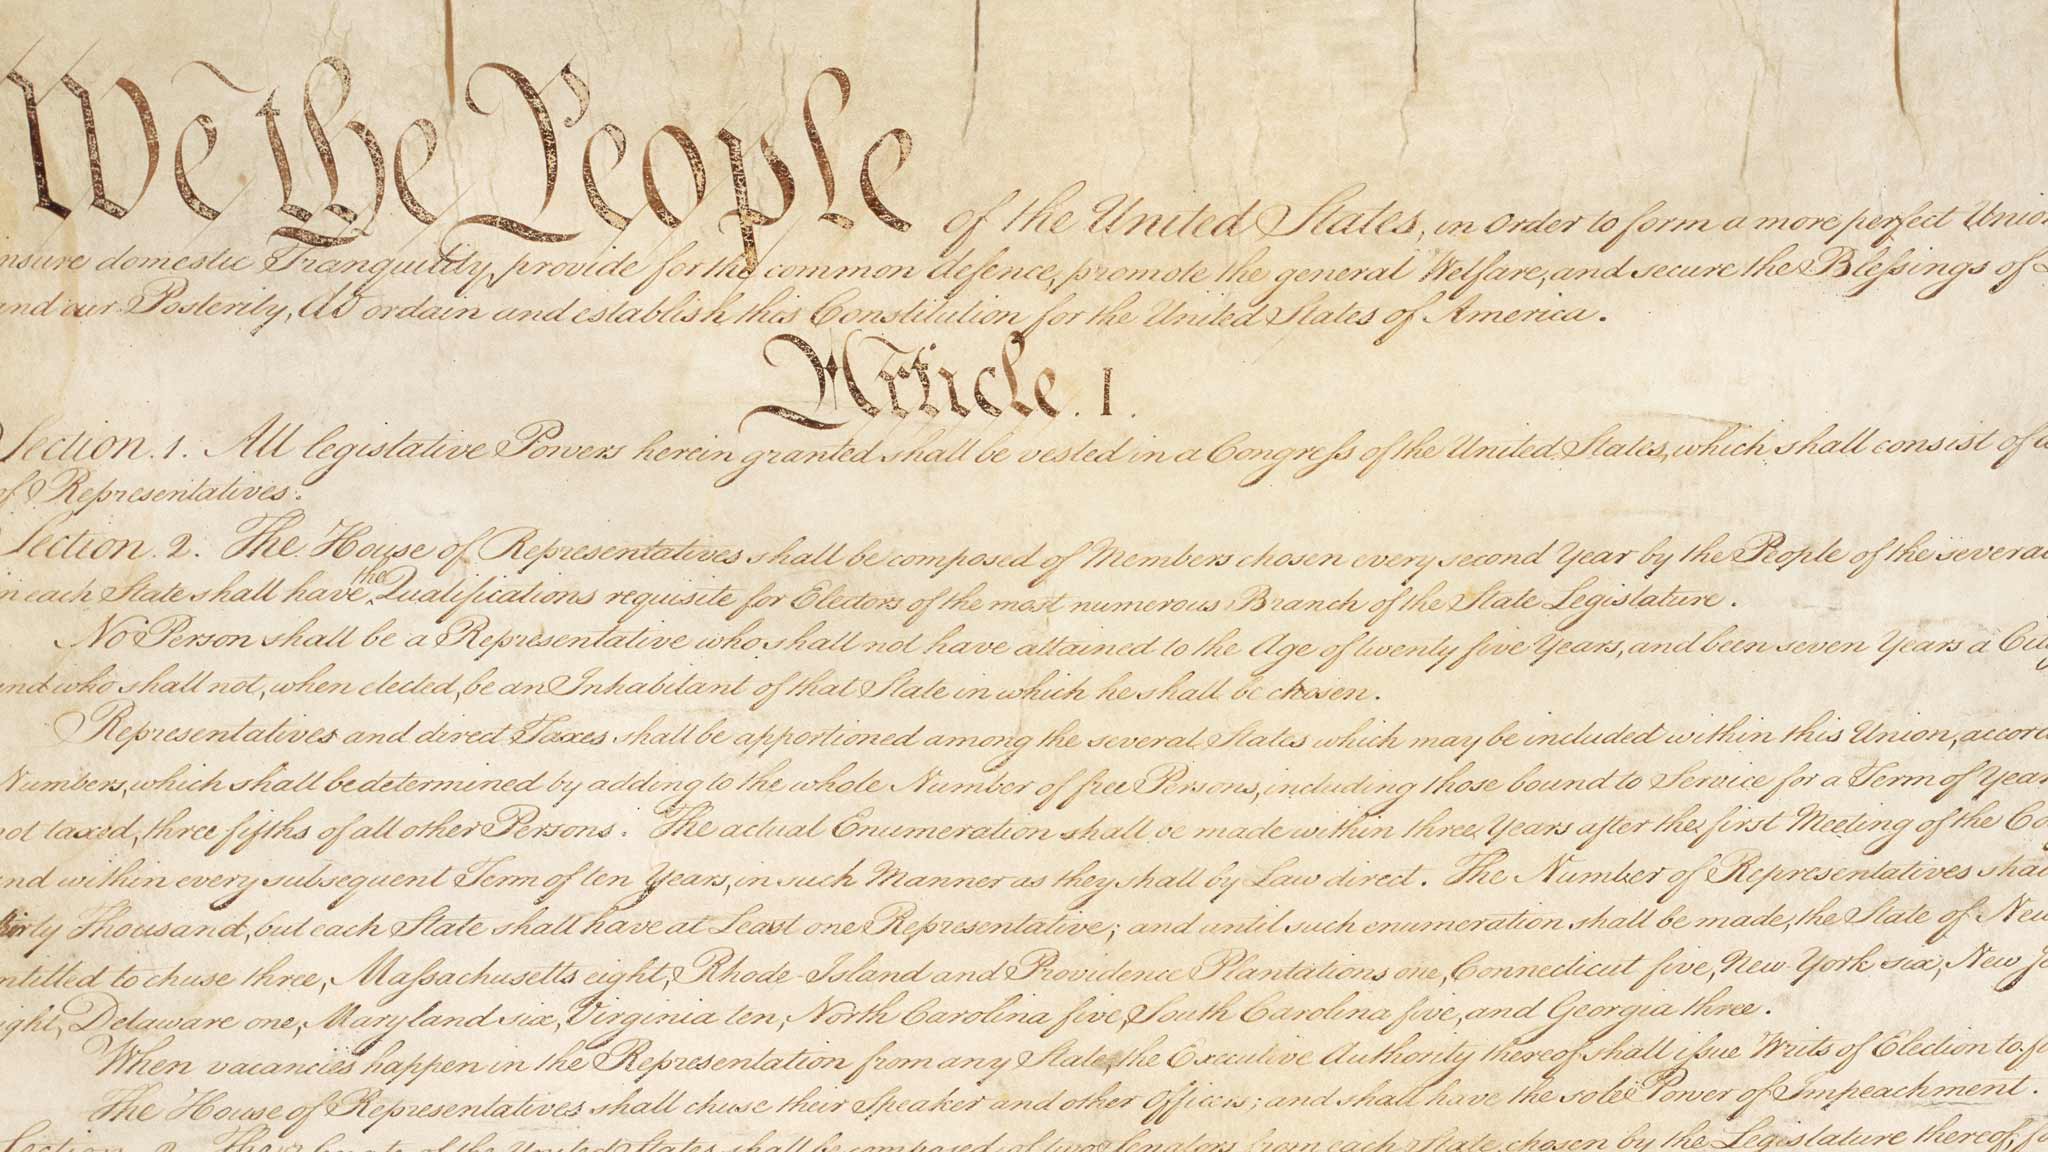 We the People of the United States, in Order to form a more perfect Unio
nsure domestic Tranquility, provide for the common defence, promote the general Welfare, and secure the Blessings of
and our Posterity, do ordain and establish this Constitution for the United States of America.
Article. I.
Section. 1. All legislative Powers herein granted shall be vested in a Congress of the United States, which shall consist of
of Representatives.
Section. 2. The House of Representatives shall be composed of Members chosen every second Year by the People of the severa
in each State shall have the Qualifications requisite for Electors of the most numerous Branch of the State Legislature.
No Person shall be a Representative who shall not have attained to the Age of twenty five Years, and been seven Years a Citi
and who shall not, when elected, be an Inhabitant of that State in which he shall be chosen.
Representatives and direct Taxes shall be apportioned among the several States which may be included within this Union, accord
Numbers, which shall be determined by adding to the whole Number of free Persons, including those bound to Service for a Term of Year
not taxed, three fifths of all other Persons. The actual Enumeration shall be made within three Years after the first Meeting of the Co
and within every subsequent Term of ten Years, in such Manner as they shall by Law direct. The Number of Representatives shal
thirty Thousand, but each State shall have at Least one Representative; and until such enumeration shall be made, the State of New
ntitled to chuse three, Massachusetts eight, Rhode-Island and Providence Plantations one, Connecticut five, New-York six, New Je
ight, Delaware one, Maryland six, Virginia ten, North Carolina five, South Carolina five, and Georgia three.
When vacancies happen in the Representation from any State, the Executive Authority thereof shall issue Writs of Election to fi
The House of Representatives shall chuse their Speaker and other Officers; and shall have the sole Power of Impeachment.
Section. 3. The Senate of the United States shall be composed of two Senators from each State, chosen by the Legislature thereof, fo